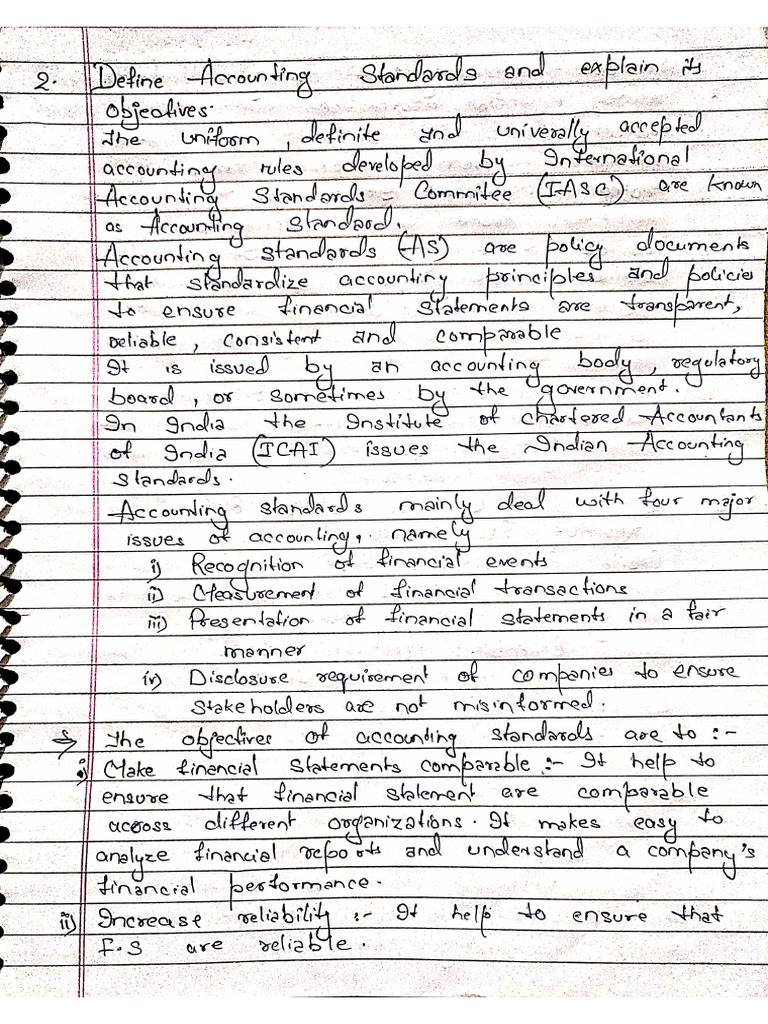 2. Define Accounting Standards and explain its
objectives.
The uniform, definite and univerally accepted
accounting rules developed by International
Accounting Standards - Commitee (IASC) are known
as Accounting Standard.
Accounting standards (AS) are policy documents
that standardize accounting principles and policies
to ensure financial statements are transparent,
reliable, consistent and comparable
It is issued by an accounting body, regulatory
board, or sometimes by the government.
In India the Institute of chartered Accountants
of India (ICAI) issues the Indian Accounting
standards.
Accounting standards mainly deal with four major
issues of accounting, namely
i) Recognition of financial events
ii) Measurement of financial transactions
iii) Presentation of financial statements in a fair
manner
iv) Disclosure requirement of companies to ensure
stakeholders are not misinformed.
The objectives of accounting standards are to :-
i) Make financial statements comparable :- It help to
ensure that financial statement are comparable
across different organizations. It makes easy to
analyze financial reports and understand a company's
financial performance.
ii) Increase reliability :- It help to ensure that
F.S are reliable.